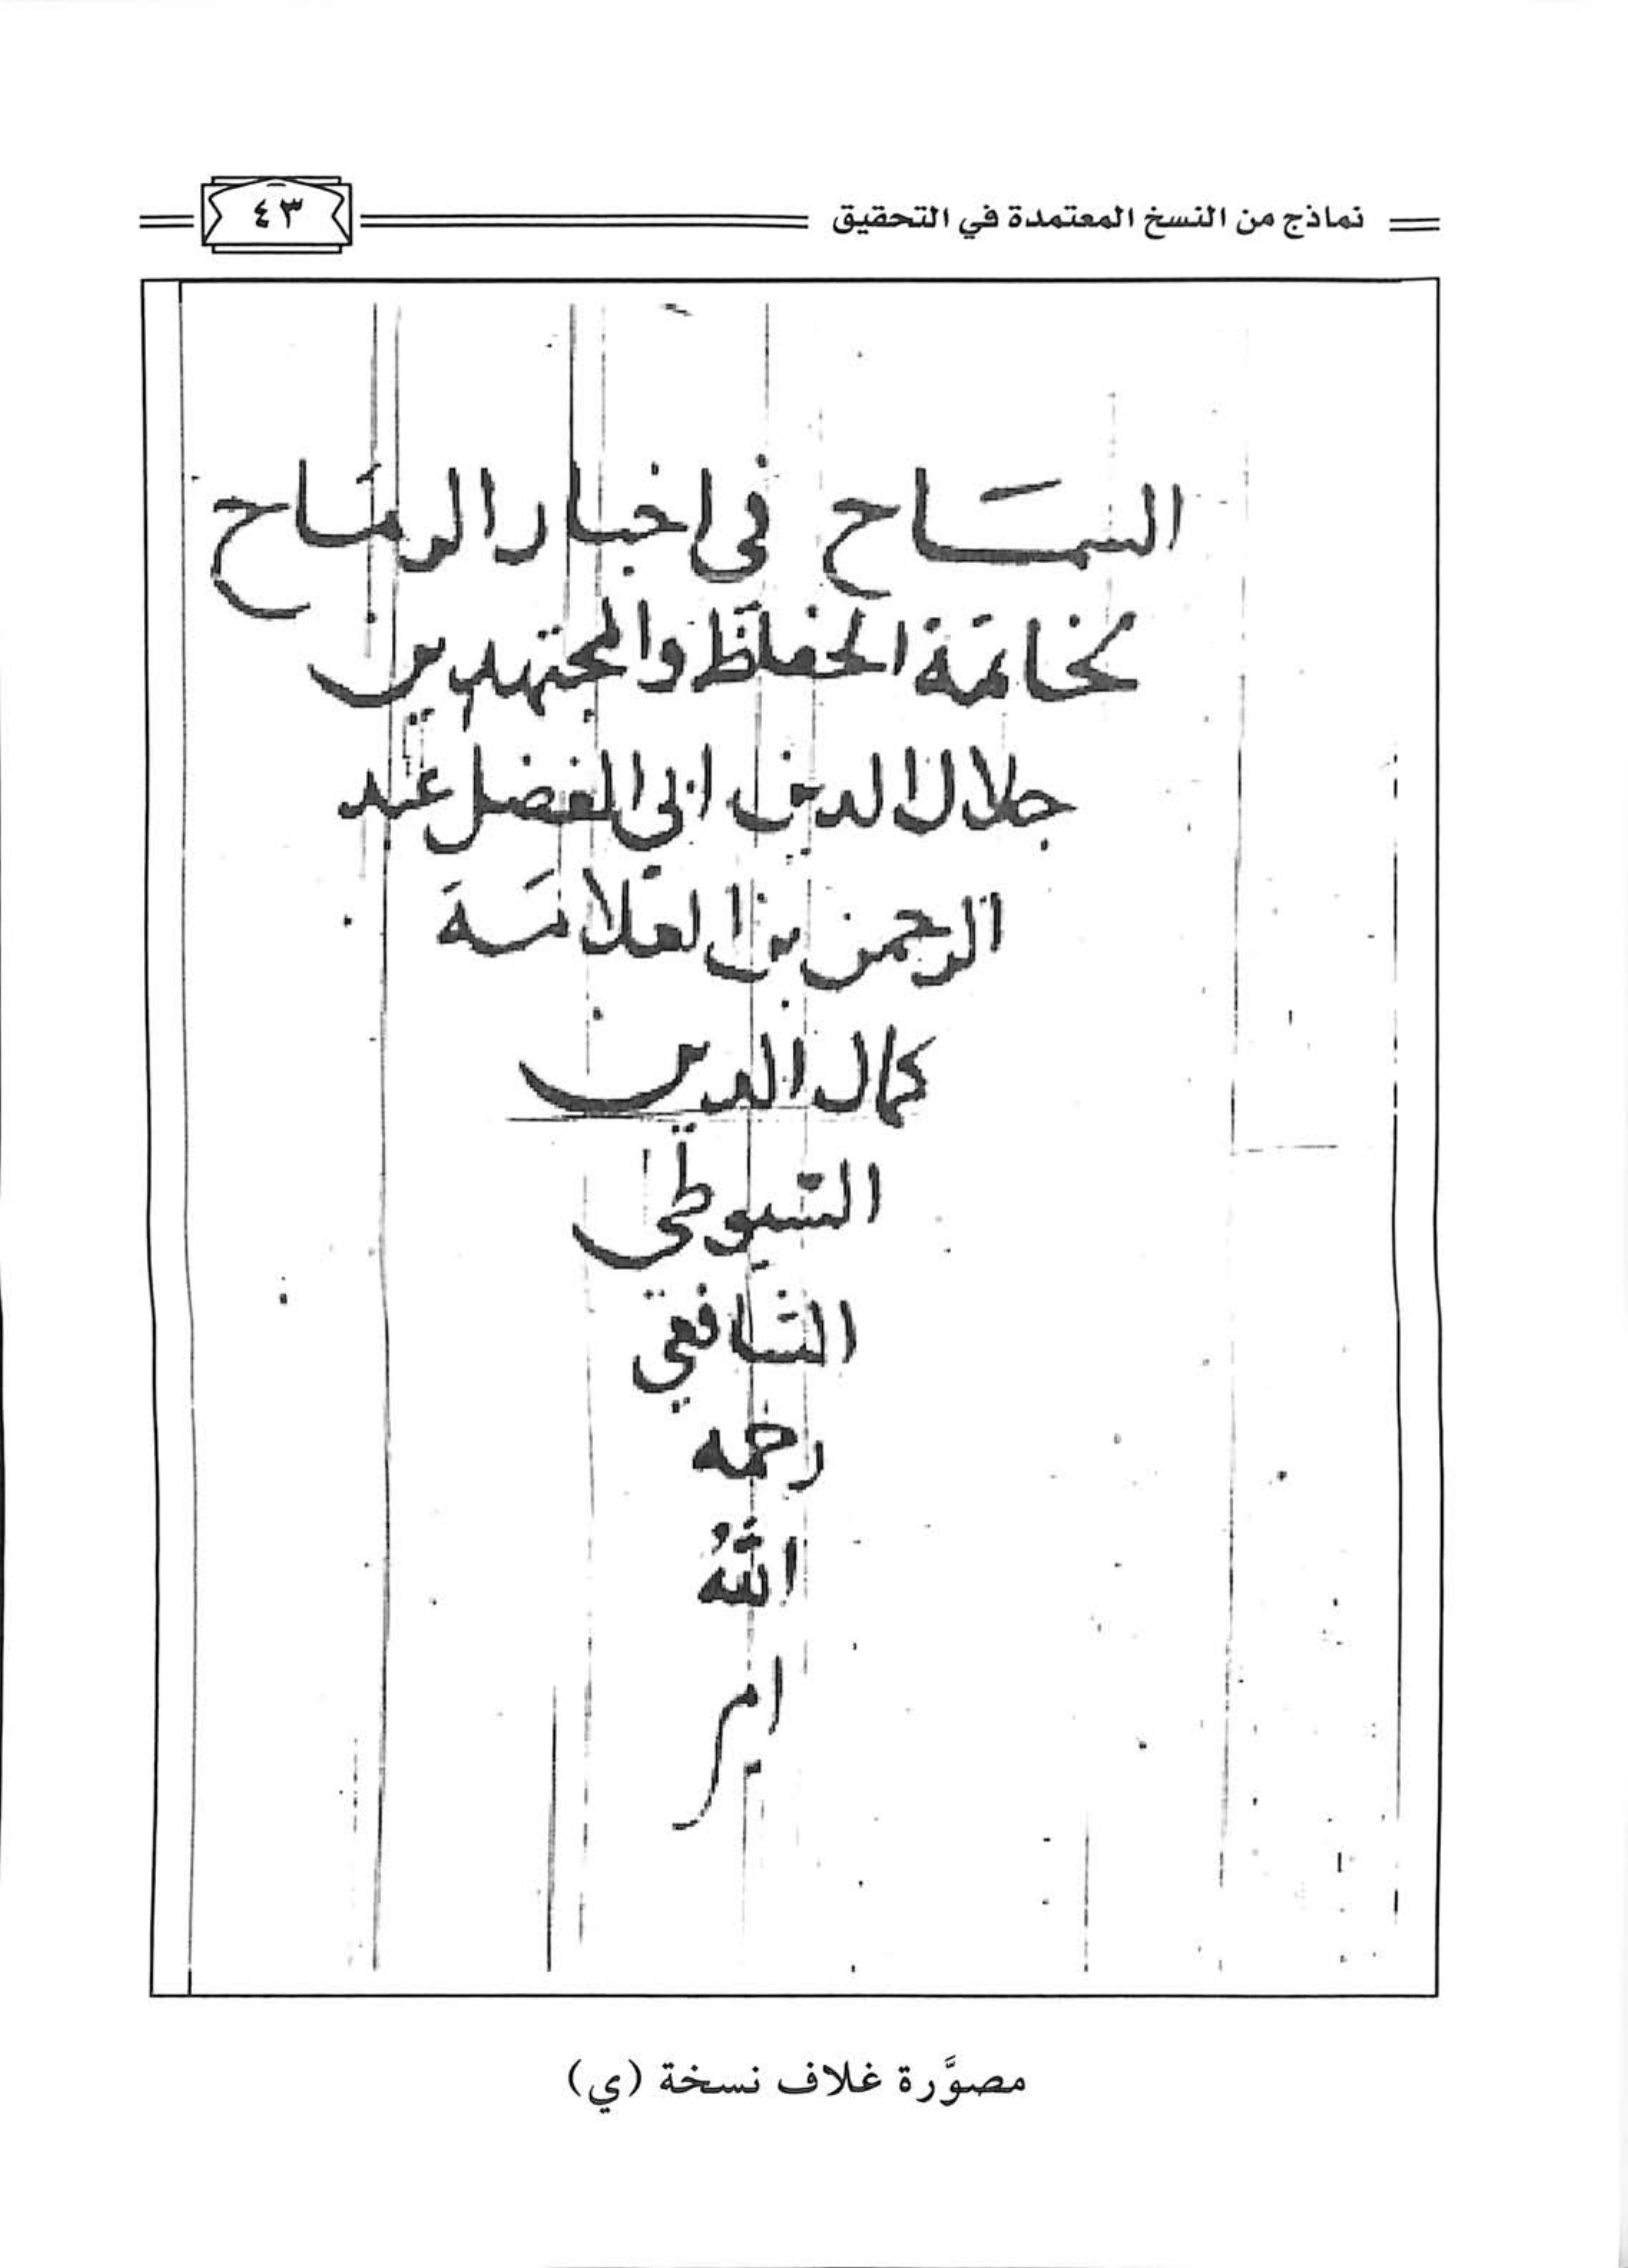 نماذج من النسخ المعتمدة في التحقيق ٤٣
السماح في اخبار الرماح
لخاتمة الحفاظ والمجتهدين
جلال الدين ابي الفضل عبد
الرحمن بن العلامة
كمال الدين
السيوطي
الشافعي
رحمه
اللهُ
امين
مصوَّرة غلاف نسخة (ي)